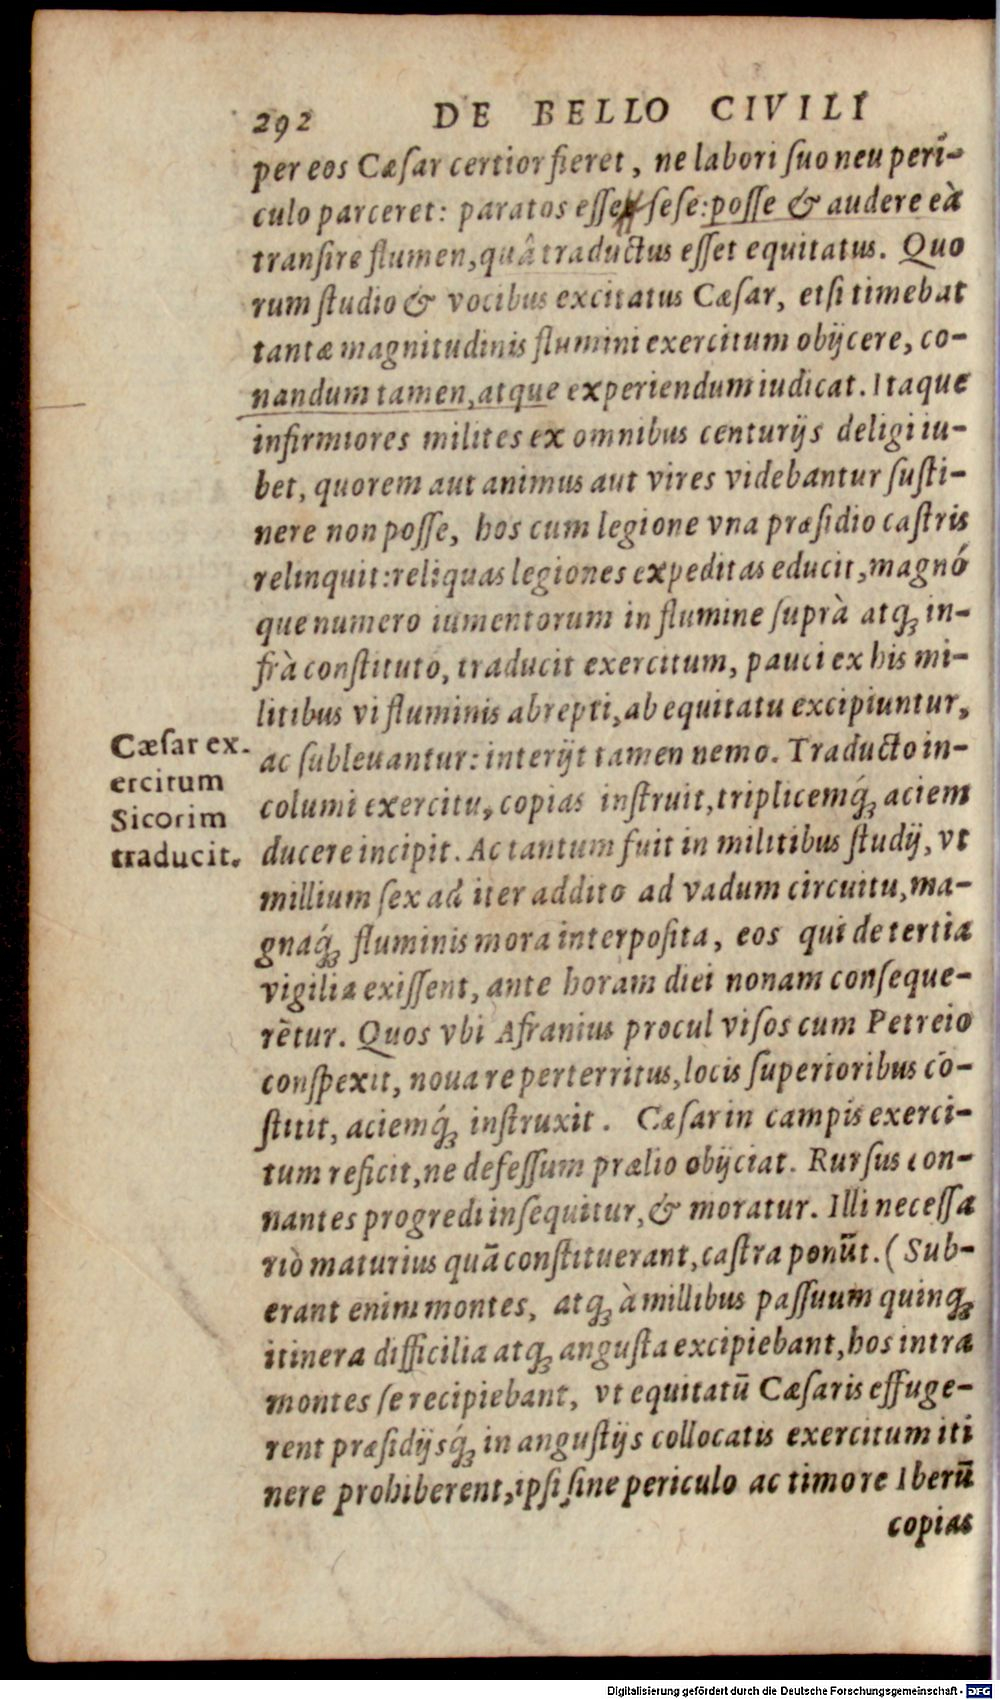 292 DE BELLO CIVILI
per eos Cæſar certior fieret, ne labori ſuo neu peri-
culo parceret: paratos eſſe ſeſe: poſſe & audere eà
tranſire flumen, quâ traductus eſſet equitatus. Quo
rum ſtudio & vocibus excitatus Cæſar, etſi timebat
tantæ magnitudinis flumini exercitum obijcere, co-
nandum tamen, atque experiendum iudicat. Itaque
infirmiores milites ex omnibus centurijs deligi iu-
bet, quorem aut animus aut vires videbantur ſuſti-
nere non poſſe, hos cum legione vna præſidio caſtris
relinquit: reliquas legiones expeditas educit, magnó
que numero iumentorum in flumine ſuprà atq; in-
frà conſtituto, traducit exercitum, pauci ex his mi-
litibus vi fluminis abrepti, ab equitatu excipiuntur,
ac ſubleuantur: interijt tamen nemo. Traducto in-
columi exercitu, copias inſtruit, triplicemq́; aciem
ducere incipit. Ac tantum fuit in militibus ſtudij, vt
millium ſex ad iter addito ad vadum circuitu, ma-
gnaq́; fluminis mora interpoſita, eos qui de tertia
vigilia exiſſent, ante horam diei nonam conſeque-
rẽtur. Quos vbi Afranius procul viſos cum Petreio
conſpexit, noua re perterritus, locis ſuperioribus cō-
ſtitit, aciemq́; inſtruxit. Cæſar in campis exerci-
tum reficit, ne defeſſum prælio obijciat. Rurſus con-
nantes progredi inſequitur, & moratur. Illi neceſſa
riò maturius quā conſtituerant, caſtra ponūt. (Sub-
erant enim montes, atq; à millibus paſſuum quinq;
itinera difficilia atq; anguſta excipiebant, hos intra
montes ſe recipiebant, vt equitatū Cæſaris effuge-
rent præſidijsq́; in anguſtijs collocatis exercitum iti
nere prohiberent, ipſi ſine periculo ac timore Iberū
copias
Cæſar ex-
ercitum
Sicorim
traducit.
Digitalisierung gefördert durch die Deutsche Forschungsgemeinschaft - DFG